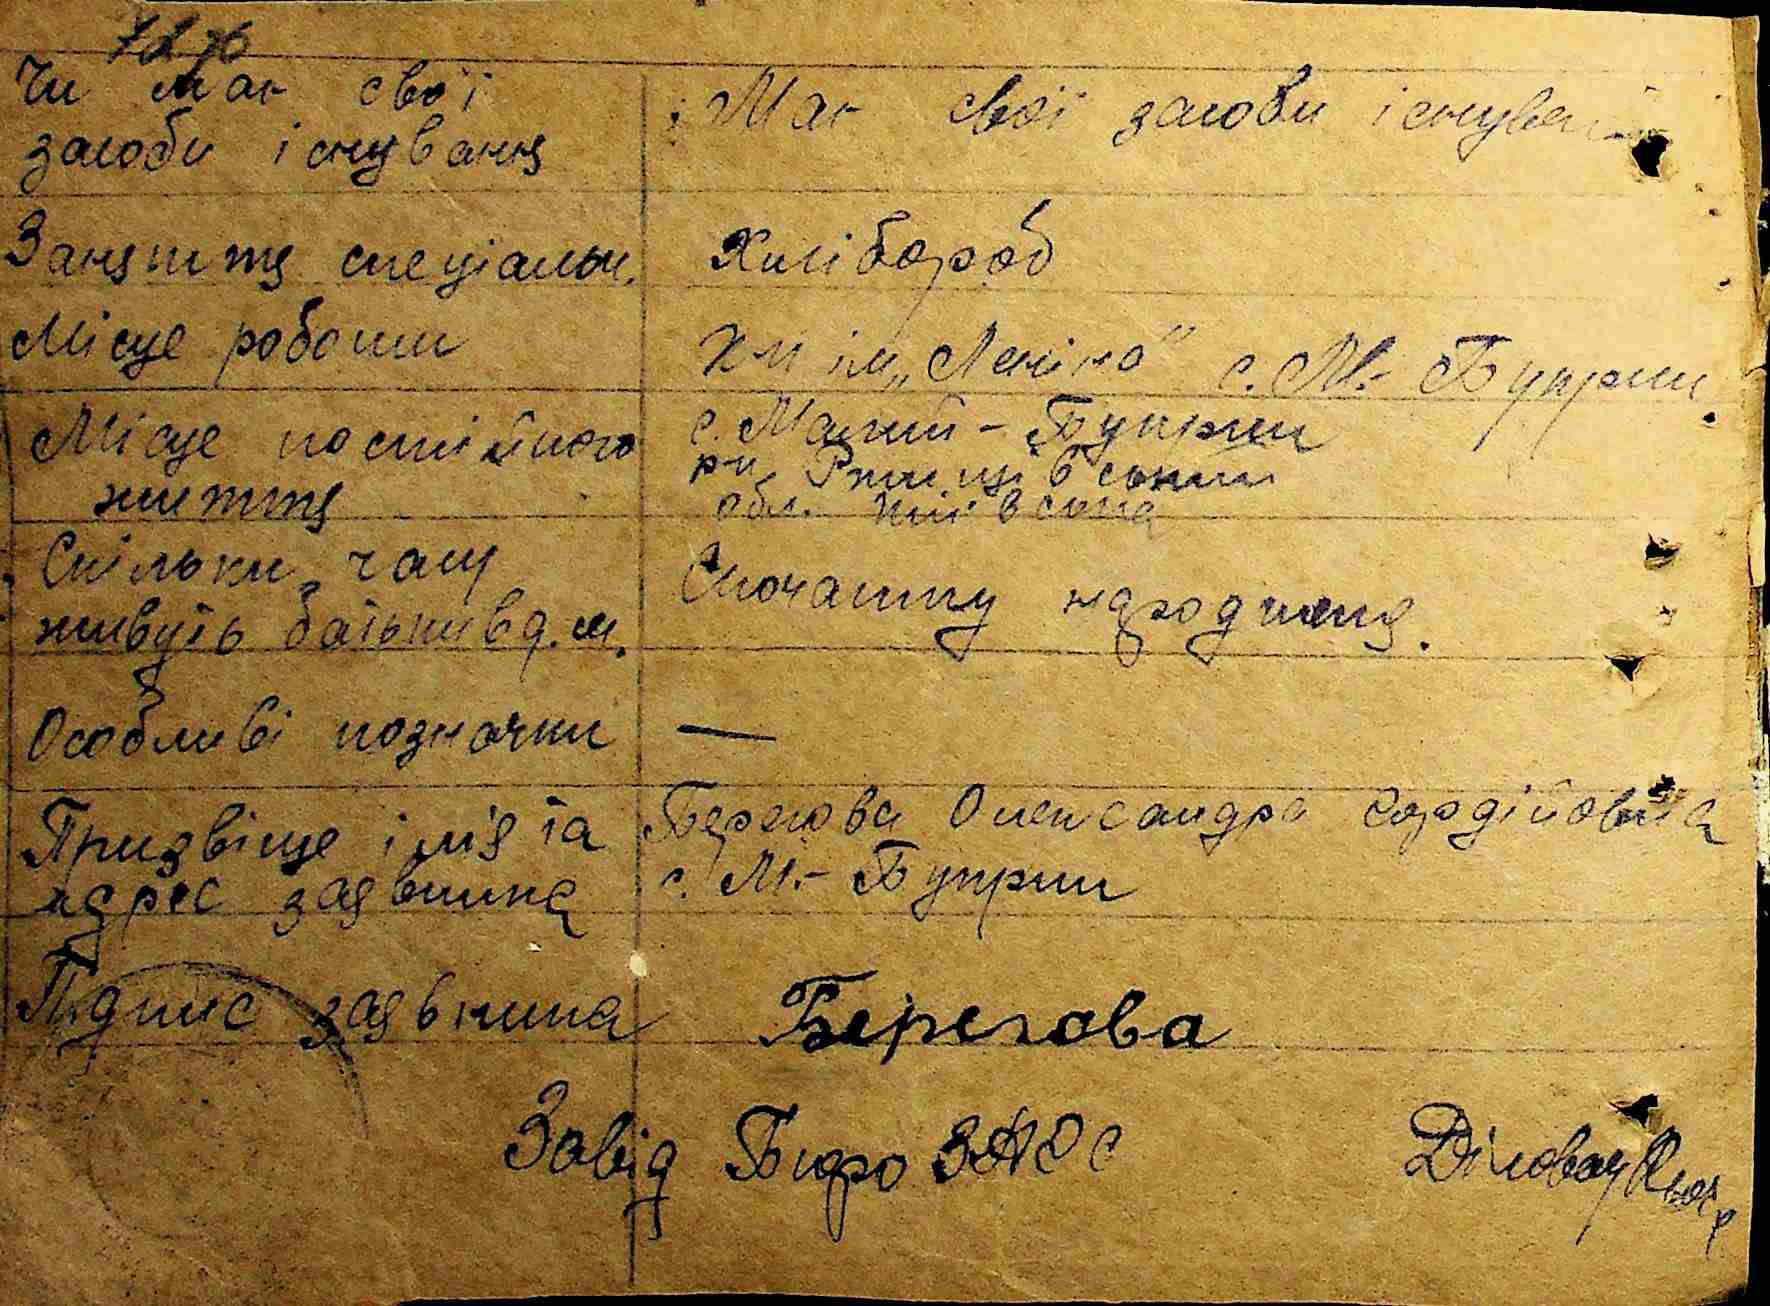 Чи має свої
засоби існування
Має свої засоби існування
Заняття спеціальн.
Хлібороб
Місце роботи
к-п ім „Леніна" с. М.- Букрин
Місце постійного
життя
с. Малий - Букрин
р-н Ржищівський
обл. Київська
Скільки часу
живуть батьки в д. м.
Спочатку народження.
Особливі позначки
—
Призвіще ім'я та
адрес заявника
Берегова Олександра Гордійовна
с. М.- Букрин
Підпис заявника
Берегова
Завід Бюро ЗАГС